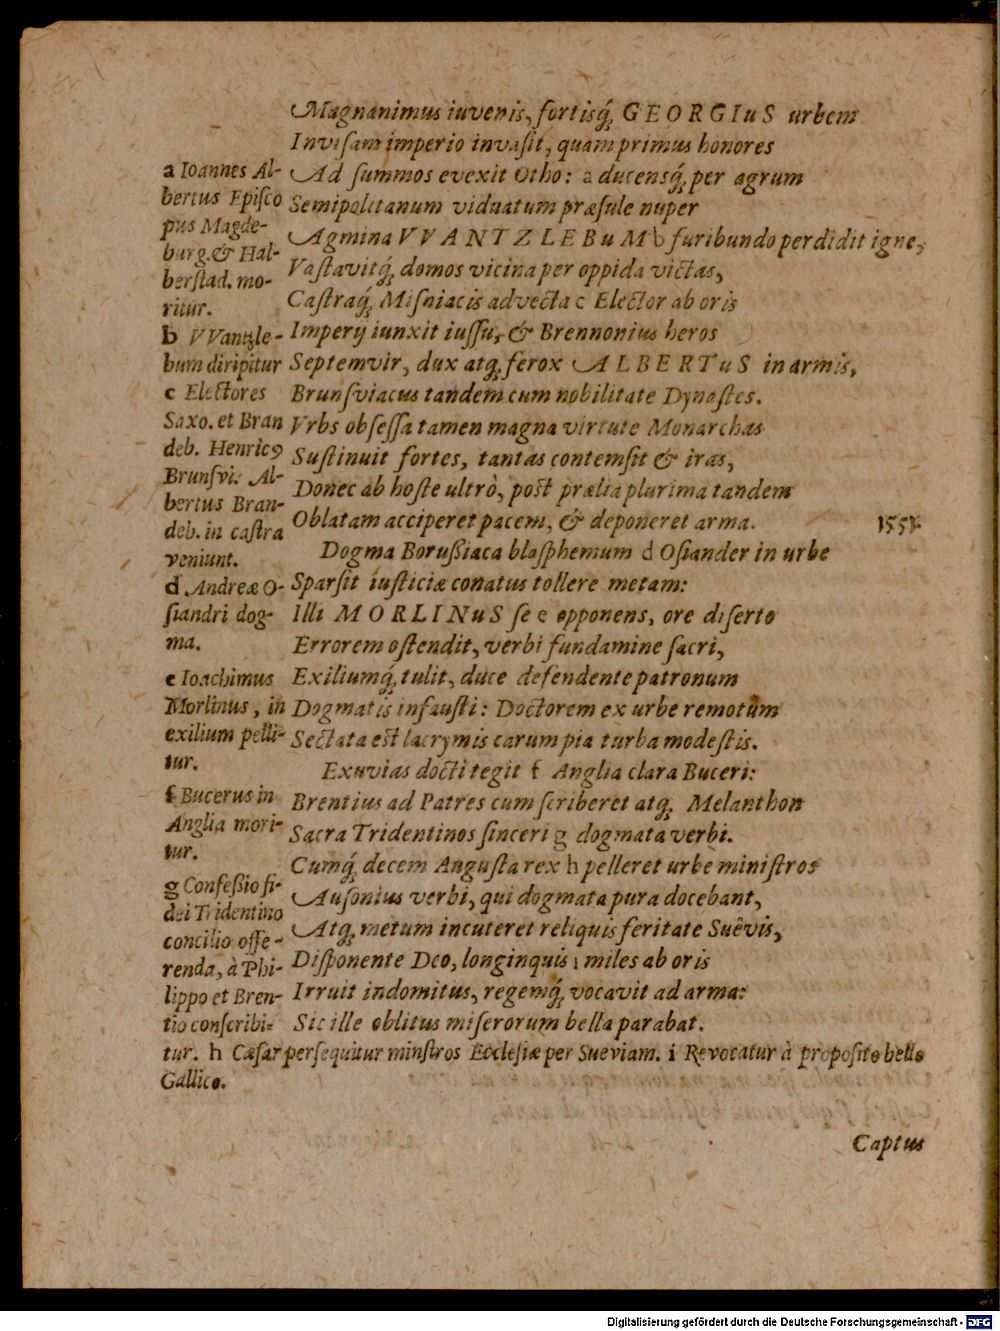 Magnanimus iuvenis, fortisq́; GEORGIuS urbem
Invisam imperio invasit, quam primus honores
Ad summos evexit Otho: a ducensq́; per agrum
Semipolitanum viduatum præsule nuper
Agmina VVANTZLEBuM b furibundo perdidit igne,
Vastavitq́; domos vicina per oppida victas,
Castraq́; Misniacis advecta c Elector ab oris
Imperij iunxit iussu, & Brennonius heros
Septemvir, dux atq; ferox ALBERTuS in armis,
Brunsviacus tandem cum nobilitate Dynastes.
Vrbs obsessa tamen magna virtute Monarchas
Sustinuit fortes, tantas contemsit & iras,
Donec ab hoste ultrò, post prælia plurima tandem
Oblatam acciperet pacem, & deponeret arma.
Dogma Borußiaca blasphemum d Osiander in urbe
Sparsit iusticiæ conatus tollere metam:
Illi MORLINuS se e opponens, ore diserto
Errorem ostendit, verbi fundamine sacri,
Exiliumq́; tulit, duce defendente patronum
Dogmatis infausti: Doctorem ex urbe remotum
Sectata est lacrymis carum pia turba modestis.
Exuvias docti tegit f Anglia clara Buceri:
Brentius ad Patres cum scriberet atq; Melanthon
Sacra Tridentinos sinceri g dogmata verbi.
Cumq́; decem Augusta rex h pelleret urbe ministros
Ausonius verbi, qui dogmata pura docebant,
Atq; metum incuteret reliquis feritate Suêvis,
Disponente Deo, longinquis i miles ab oris
Irruit indomitus, regemq́; vocavit ad arma:
Sic ille oblitus miserorum bella parabat.
a Ioannes Al-
bertus Episco
pus Magde-
burg. & Hal-
berstad. mo-
ritur.
b VVantzle-
bum diripitur
c Electores
Saxo. et Bran
deb. Henricꝰ
Brunsvi. Al-
bertus Bran-
deb. in castra
veniunt.
d Andreæ O-
siandri dog-
ma.
e Ioachimus
Morlinus, in
exilium pelli-
tur.
f Bucerus in
Anglia mori-
tur.
g Confeßio fi-
dei Tridentino
concilio offe-
renda, à Phi-
lippo et Bren-
tio conscribi-
tur. h Cæsar persequitur minstros Ecclesiæ per Sueviam. i Revocatur à proposito bello
Gallico.
Captus
Digitalisierung gefördert durch die Deutsche Forschungsgemeinschaft - DFG